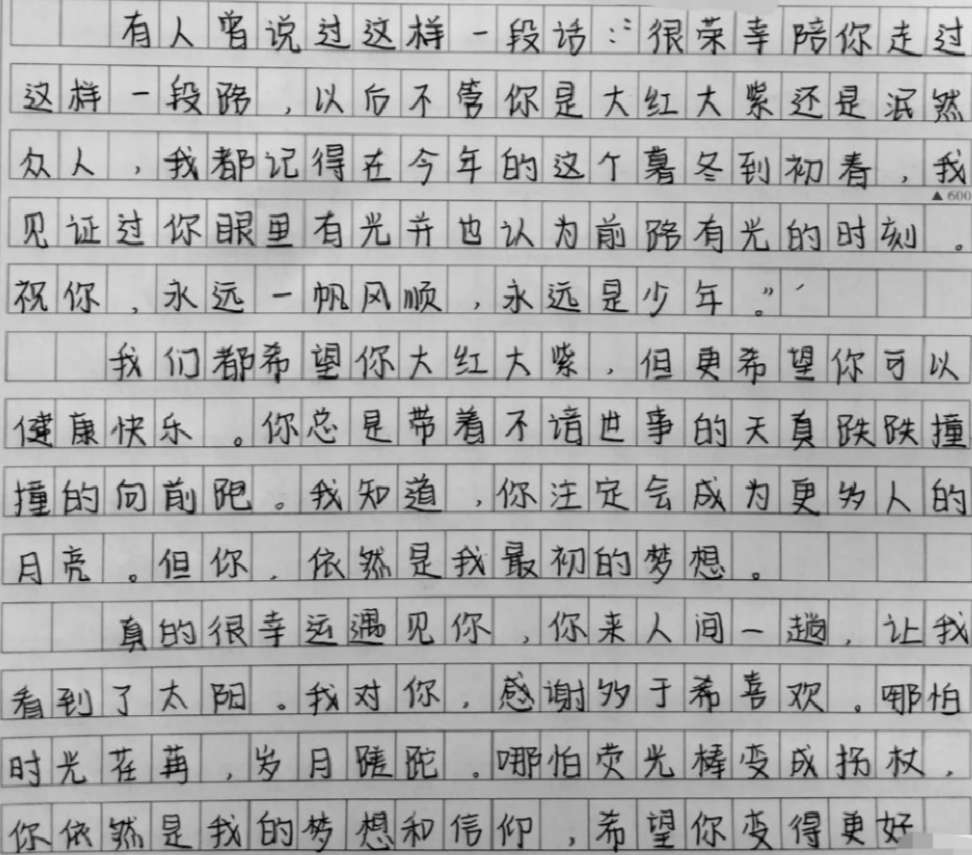 有人曾说过这样一段话:“很荣幸陪你走过
这样一段路,以后不管你是大红大紫还是泯然
众人,我都记得在今年的这个暮冬到初春,我
▲600
见证过你眼里有光并也认为前路有光的时刻。
祝你,永远一帆风顺,永远是少年。”
我们都希望你大红大紫,但更希望你可以
健康快乐。你总是带着不谙世事的天真跌跌撞
撞的向前跑。我知道,你注定会成为更多人的
月亮。但你,依然是我最初的梦想。
真的很幸运遇见你,你来人间一趟,让我
看到了太阳。我对你,感谢多于希喜欢。哪怕
时光荏苒,岁月蹉跎。哪怕荧光棒变成拐杖,
你依然是我的梦想和信仰,希望你变得更好